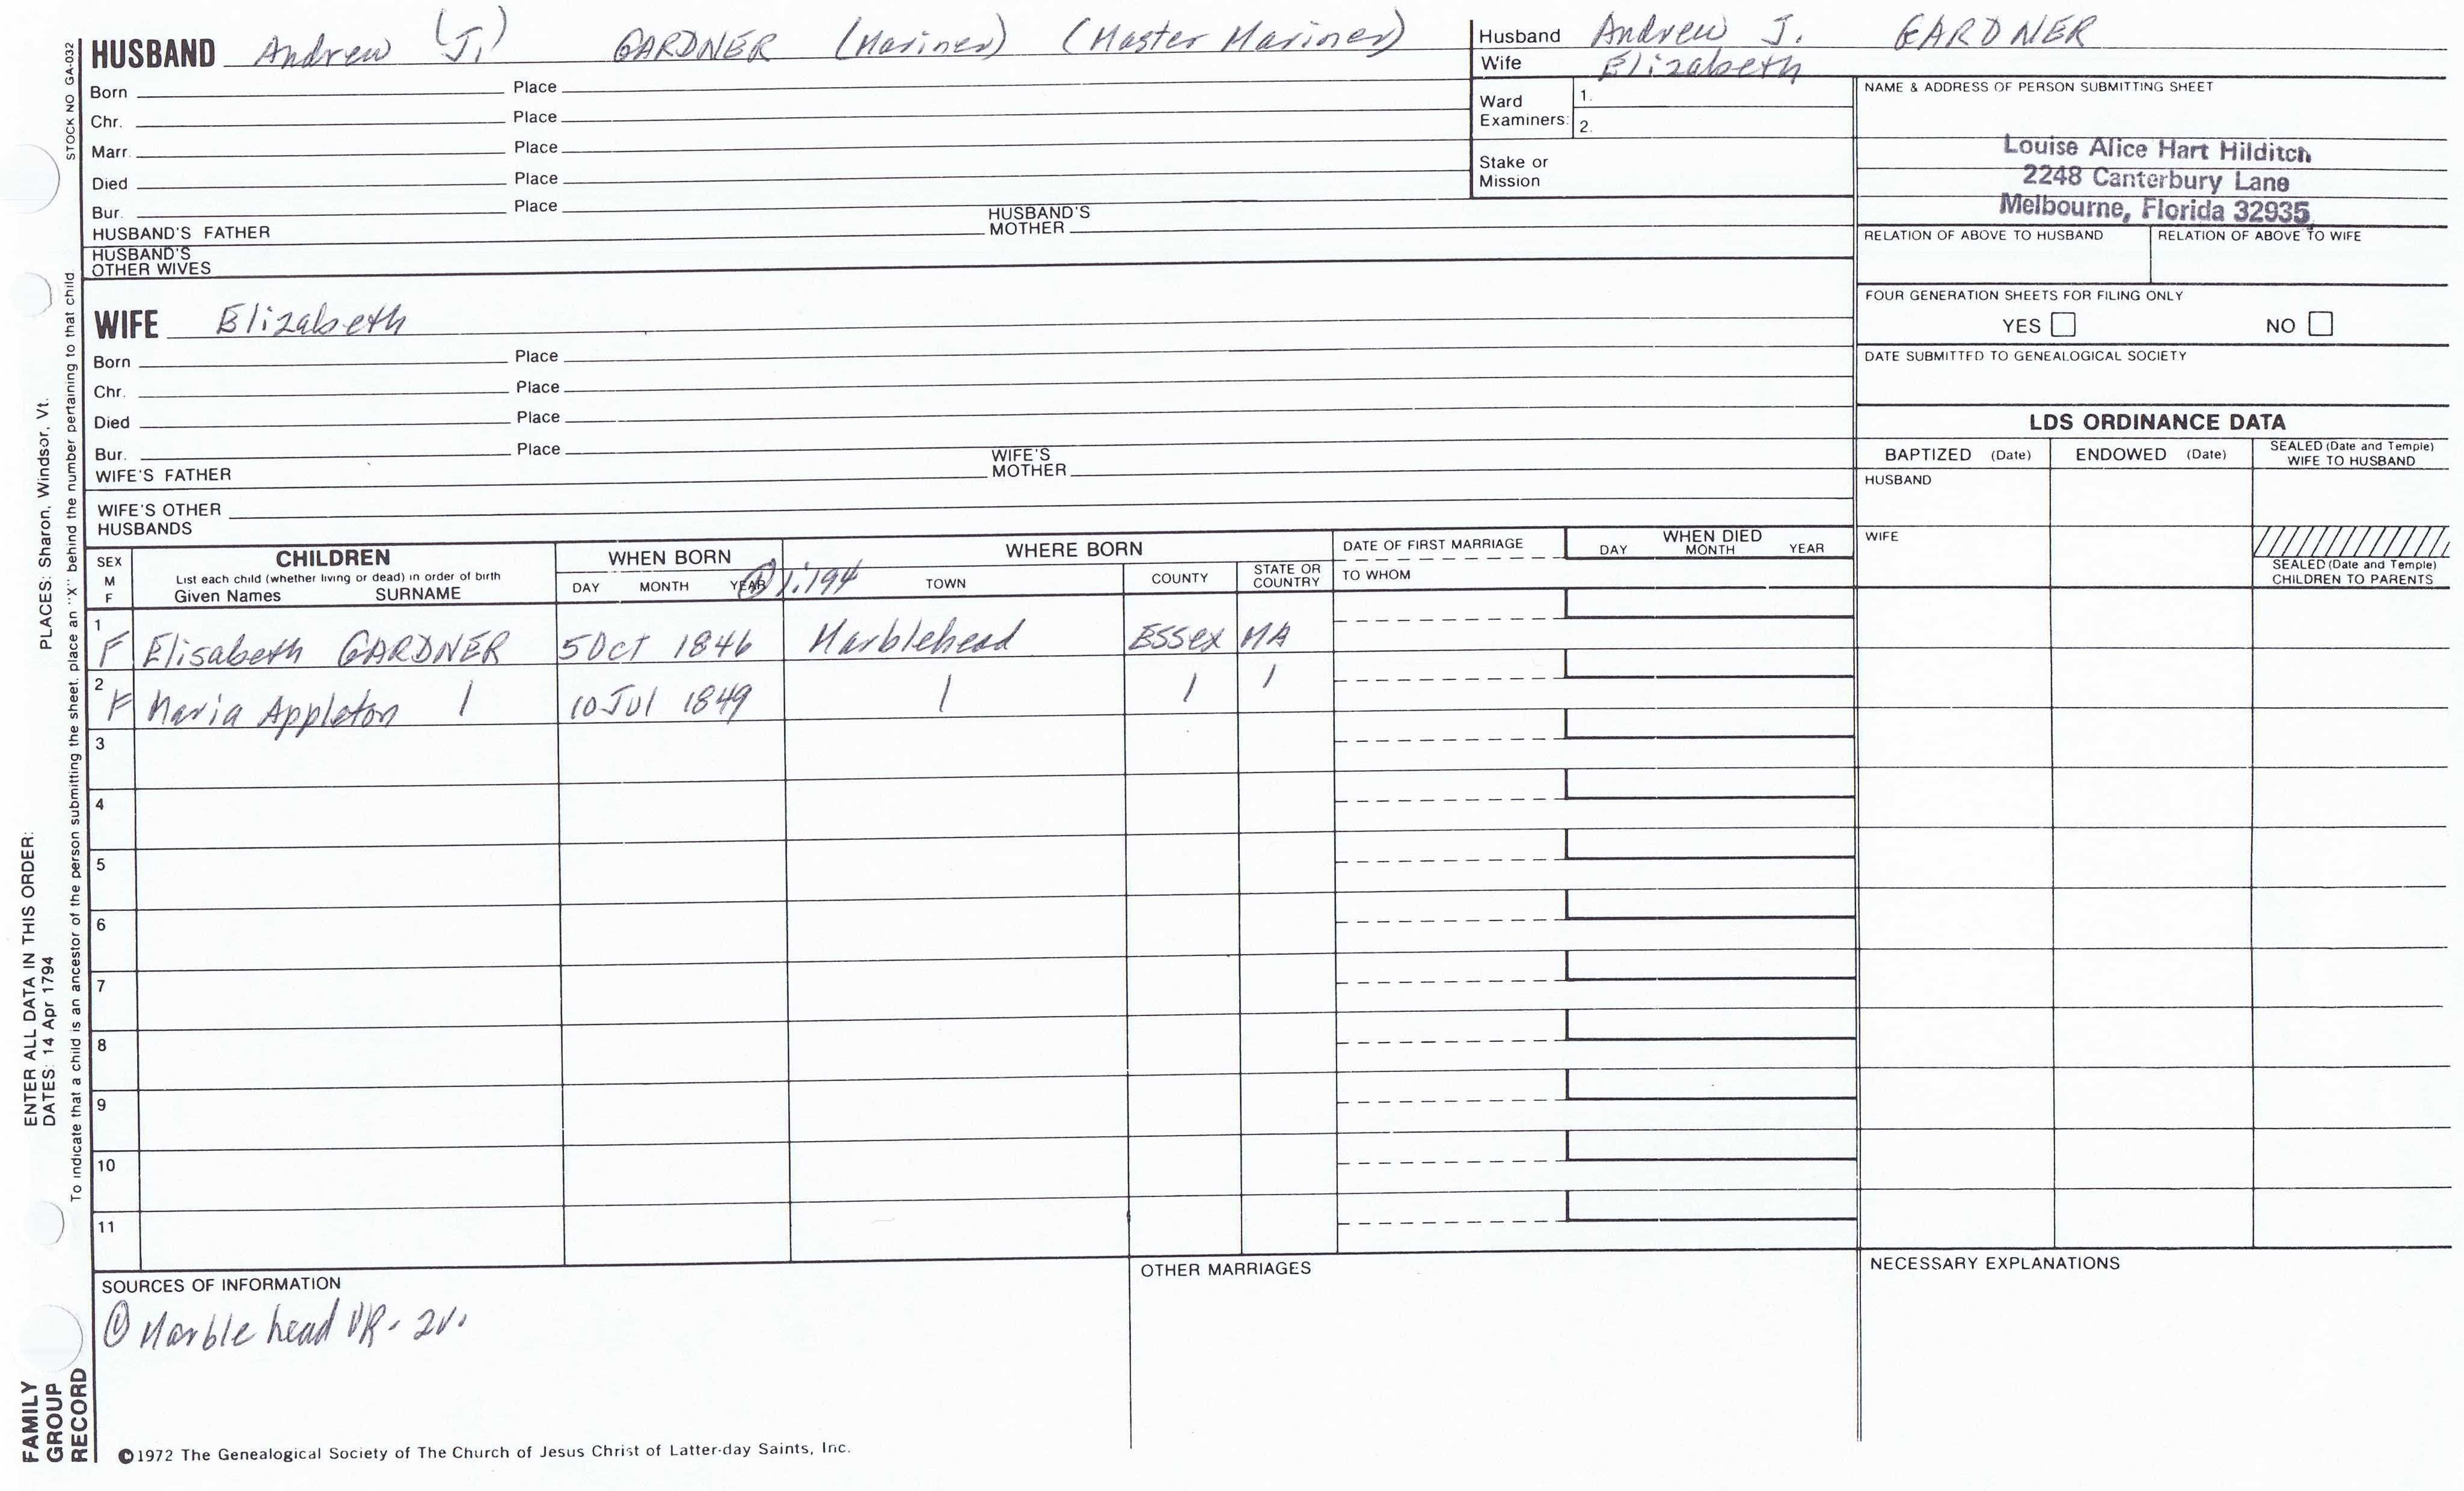 STOCK NO GA-032
HUSBAND Andrew (J.) GARDNER (Mariner) (Master Mariner)
Born Place
Chr. Place
Marr. Place
Died Place
Bur. Place
HUSBAND'S FATHER HUSBAND'S MOTHER
HUSBAND'S OTHER WIVES
WIFE Elizabeth
Born Place
Chr. Place
Died Place
Bur. Place
WIFE'S FATHER WIFE'S MOTHER
WIFE'S OTHER HUSBANDS
Husband Andrew J. GARDNER
Wife Elizabeth
Ward Examiners: 1.
2.
Stake or Mission
NAME & ADDRESS OF PERSON SUBMITTING SHEET
Louise Alice Hart Hilditch
2248 Canterbury Lane
Melbourne, Florida 32935
RELATION OF ABOVE TO HUSBAND RELATION OF ABOVE TO WIFE
FOUR GENERATION SHEETS FOR FILING ONLY
YES NO
DATE SUBMITTED TO GENEALOGICAL SOCIETY
LDS ORDINANCE DATA
BAPTIZED (Date) ENDOWED (Date) SEALED (Date and Temple) WIFE TO HUSBAND
HUSBAND
WIFE
SEALED (Date and Temple) CHILDREN TO PARENTS
SEX M F
CHILDREN
List each child (whether living or dead) in order of birth
Given Names SURNAME
WHEN BORN
DAY MONTH YEAR
① 1:194
WHERE BORN
TOWN COUNTY STATE OR COUNTRY
DATE OF FIRST MARRIAGE
TO WHOM
WHEN DIED
DAY MONTH YEAR
1 F Elisabeth GARDNER 5 Oct 1846 Marblehead Essex MA
2 F Maria Appleton | 10 Jul 1849 | | |
3
4
5
6
7
8
9
10
11
SOURCES OF INFORMATION
① Marblehead VR - 2v.
OTHER MARRIAGES
NECESSARY EXPLANATIONS
©1972 The Genealogical Society of The Church of Jesus Christ of Latter-day Saints, Inc.
ENTER ALL DATA IN THIS ORDER:
DATES: 14 Apr 1794 PLACES: Sharon, Windsor, Vt.
To indicate that a child is an ancestor of the person submitting the sheet, place an "X" behind the number pertaining to that child
FAMILY
GROUP
RECORD